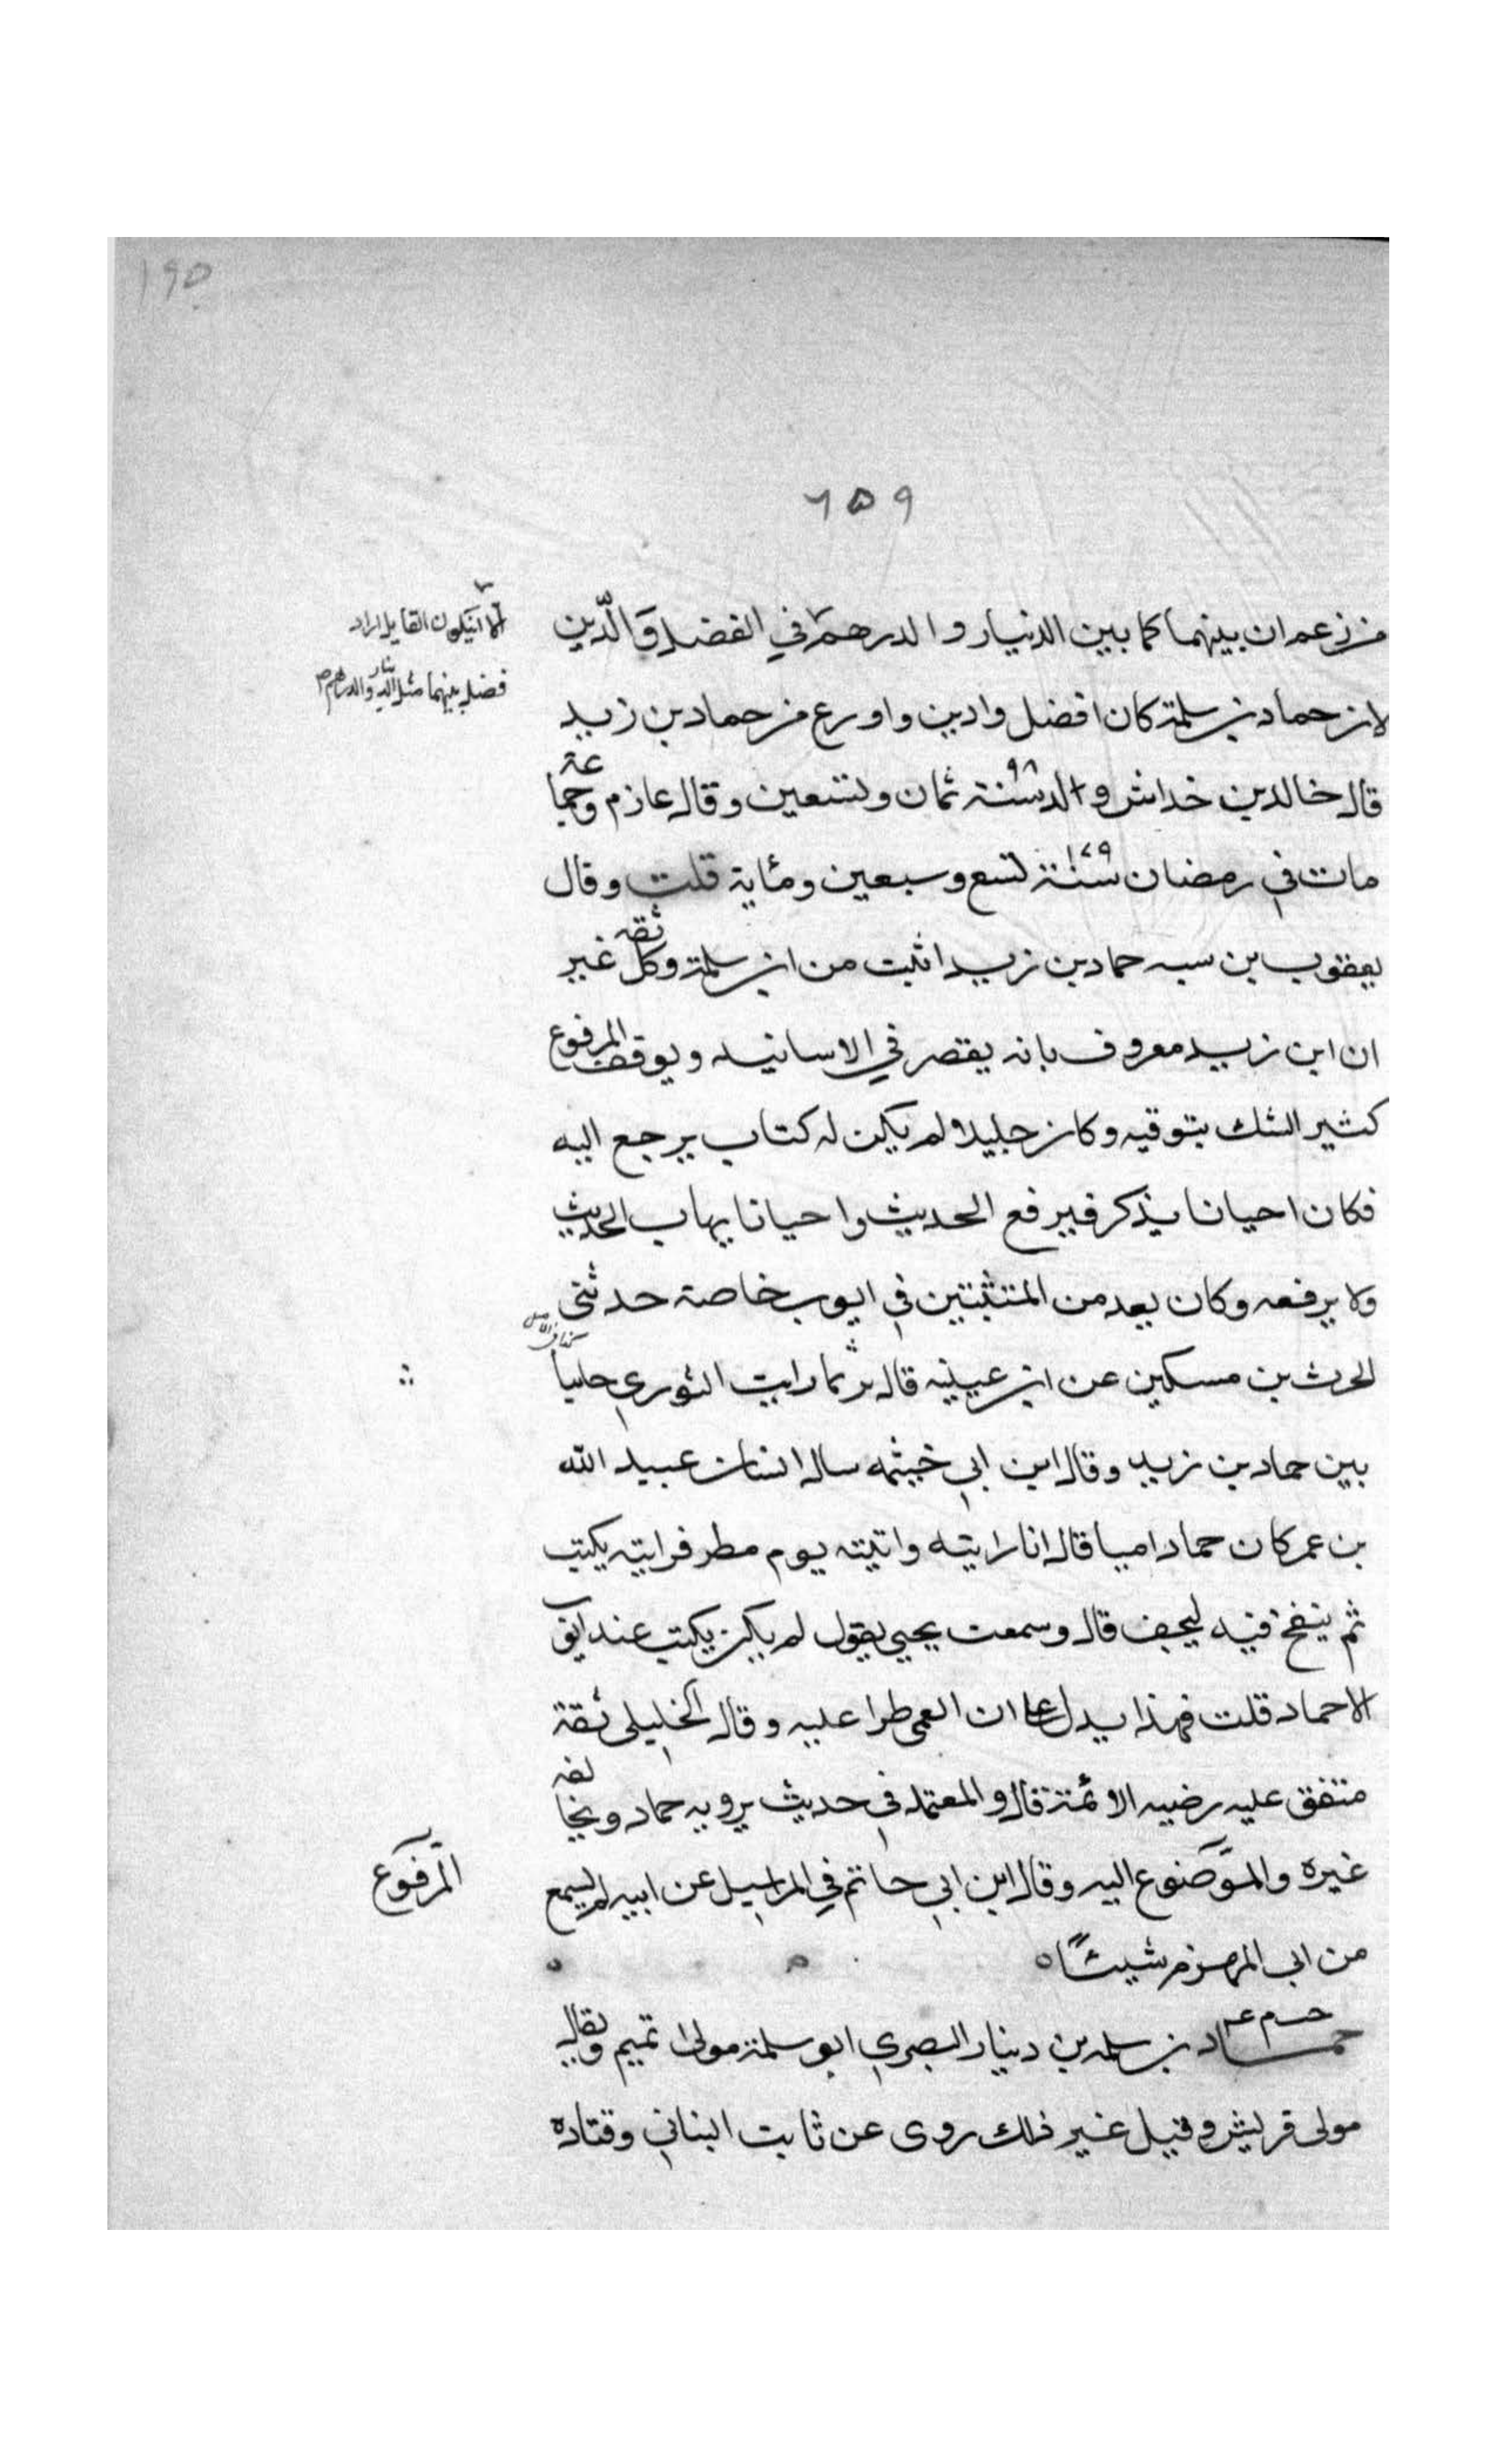 ١٩٥
٦٥٩
من زعم ان بينهما كما بين الدنيار والدرهم في الفضل والّدين
الا ان يكون القايل اراد
فضل بينهما مثل الدينار والدرهم
لان حماد بن سلمة كان افضل وادين واورع من حماد بن زيد
قال خالد بن خداش ولد سنة ٩٨ ثمان وتسعين وقال عازم وجماعة
مات في رمضان سنة ١٧٩ تسع وسبعين ومئاية قلت وقال
يعقوب بن سبه حماد بن زيد اثبت من ابن سلمة وكل ثقه غير
ان ابن زيد معروف بانه يقتصر في الاسانيد ويوقف المرفوع
كثير الشك بتوقيه وكان جليلا لم يكن له كتاب يرجع اليه
فكان احيانا يذكر فيرفع الحديث واحيانا يهاب الحديث
ولا يرفعه وكان يعد من المتثبتين في ايوب خاصة حدثنى
الحرث بن مسكين عن ابن عيينه قال لربما رايت الثوري جاثيا
بين حماد بن زيد وقال ابن ابي خيثمه سال انسان عبيد الله
بن عمر كان حماد اميا قال انا رايته واتيته يوم مطر فرايته يكتب
ثم ينفخ فيه ليجف قال وسمعت يحيي يقول لم يكن يكتب عند ايوب
الا حماد قلت فهذا يدل على ان العمى طرا عليه وقال الخليلى ثقة
متفق عليه رضيه الائمة قال والمعتمد في حديث يرويه حماد ويخالفه
غيره والموضوع اليه وقال ابن ابي حاتم في المراسيل عن ابيه لم يسمع
المرفوع
من ابي المهزم شيئًا
حماد بن سلمه بن دينار البصري ابو سلمة مولى تميم ويقال
مولى قريش وقيل غير ذلك روى عن ثابت البناني وقتاده